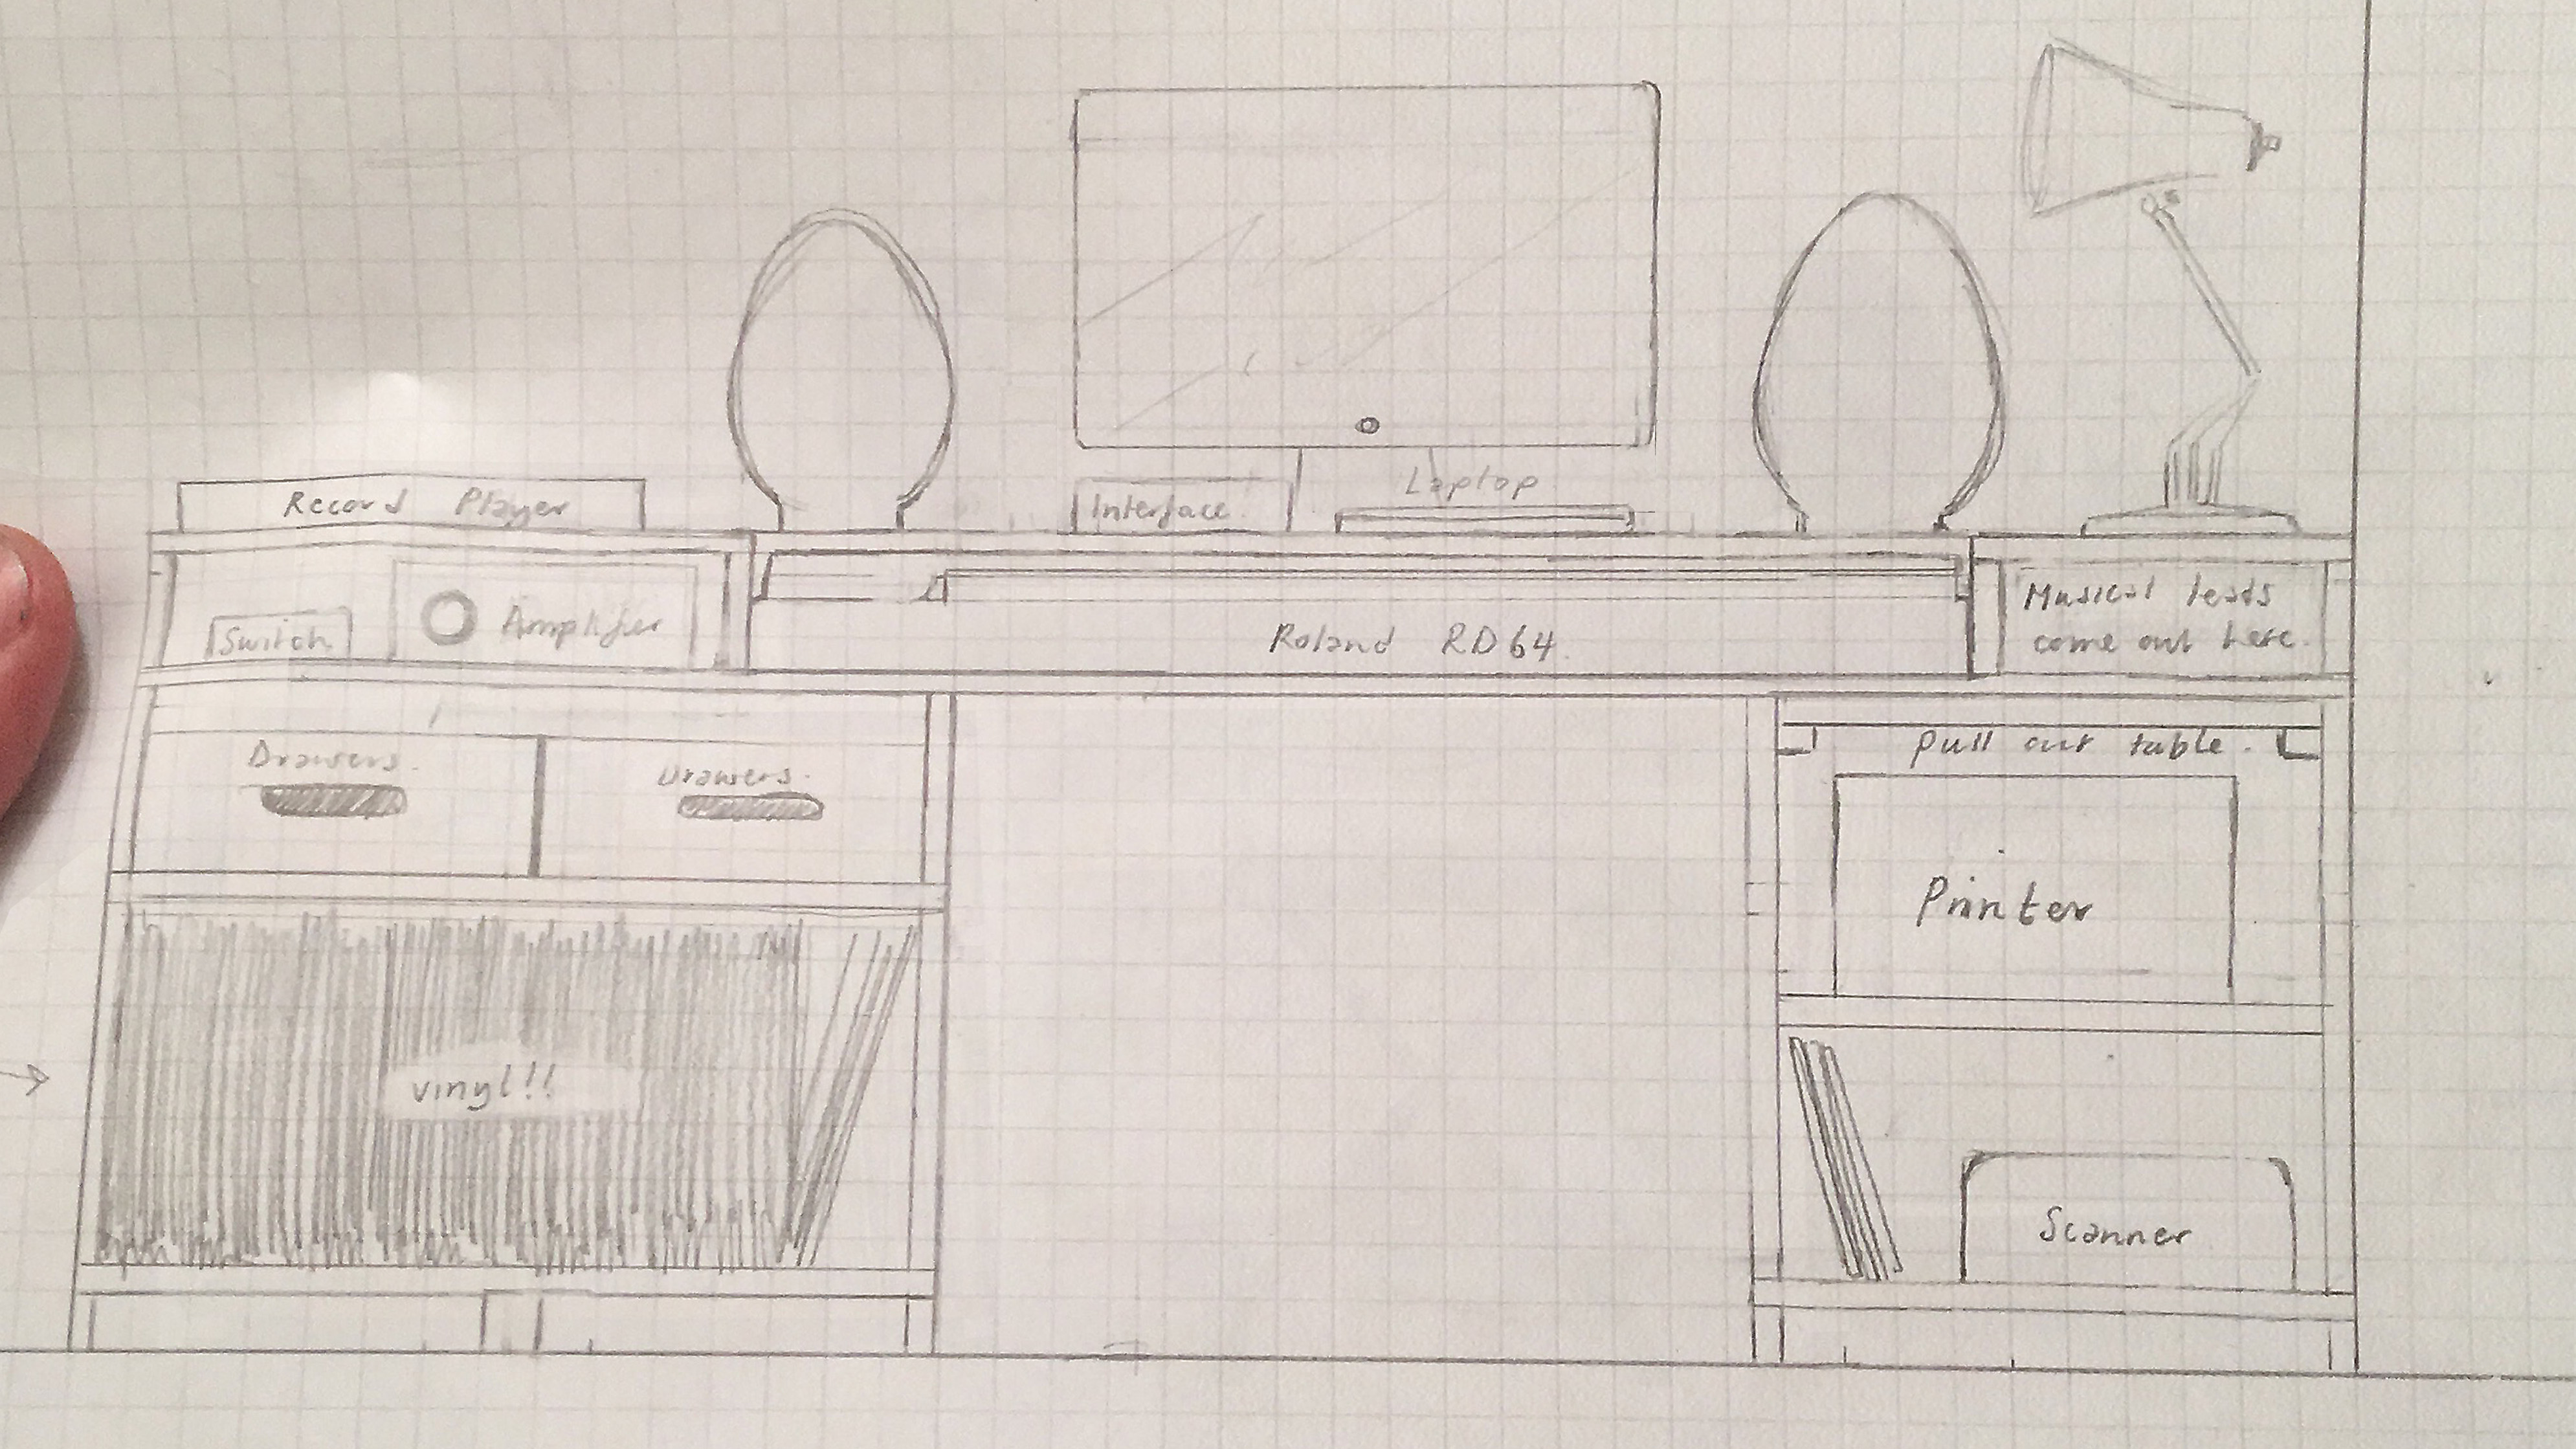 Laptop
Record Player
Interface
Switch
Amplifier
Roland RD64.
Musical leads
come out here.
Drawers.
Drawers.
Pull out table.
Printer
vinyl!!
Scanner